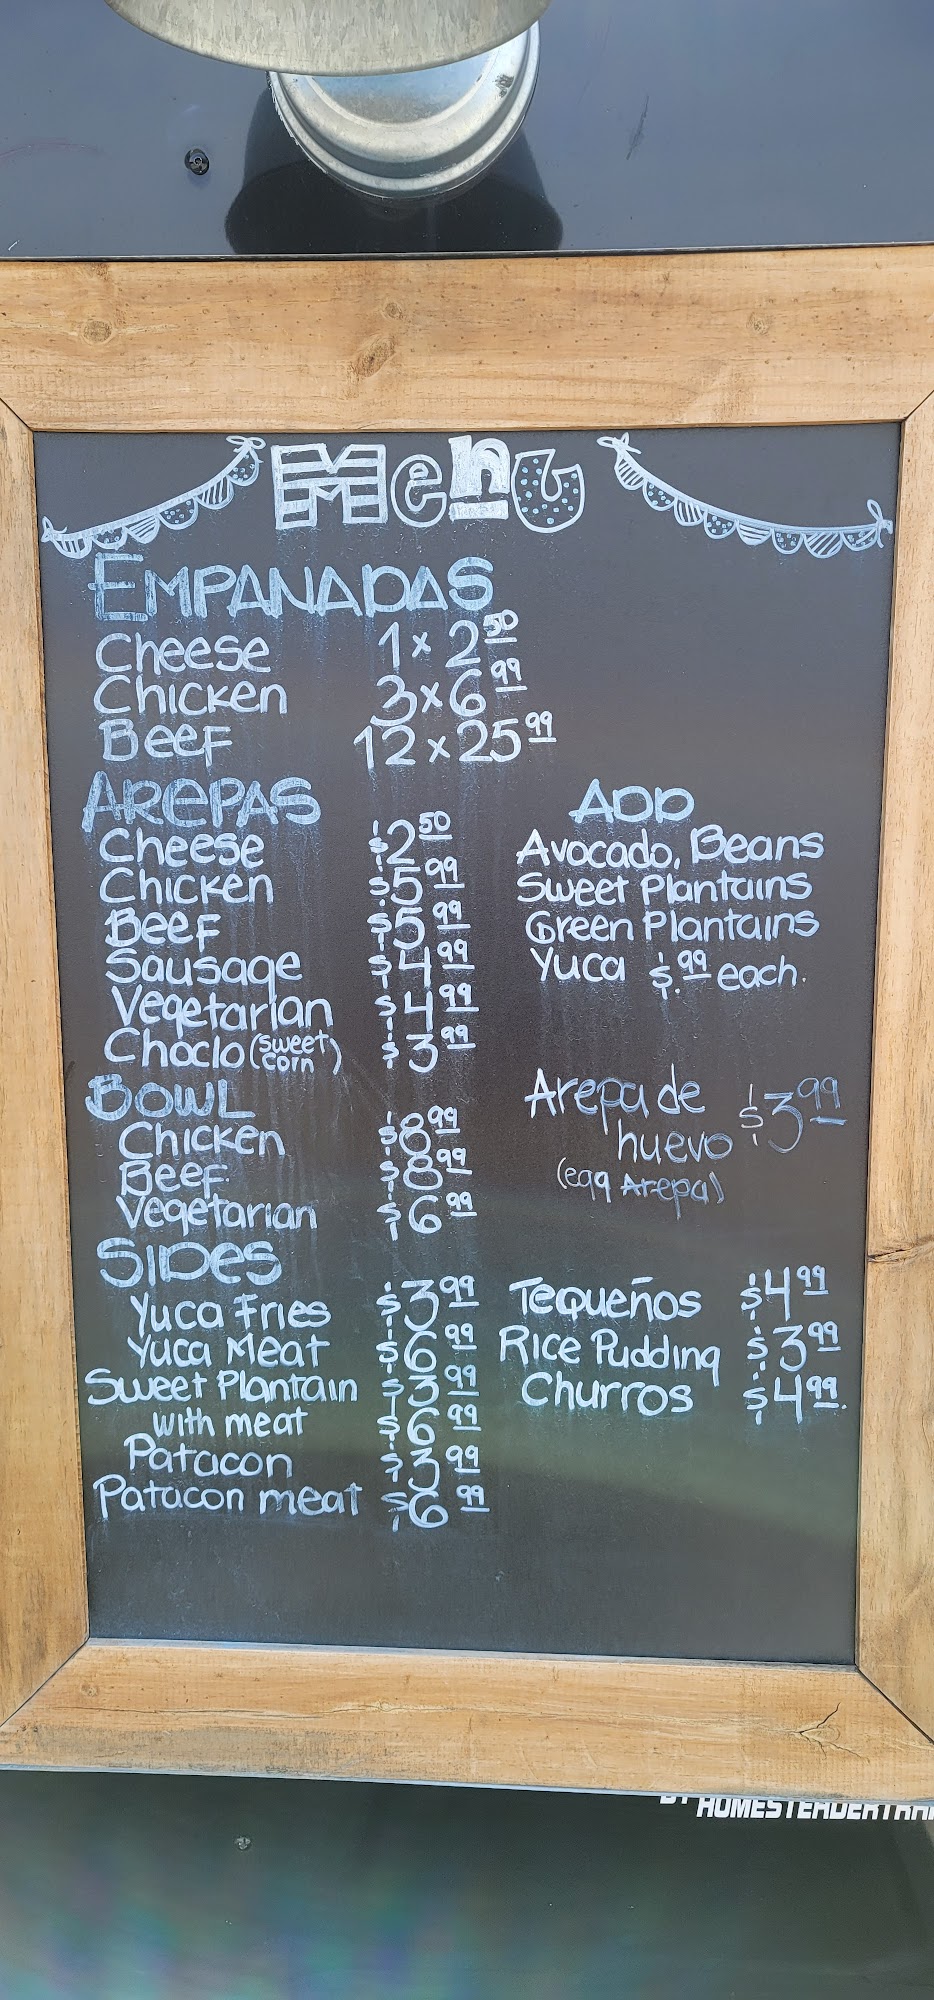 Menu
EMPANADAS
Cheese 1 x 2.50
Chicken 3 x 6.99
Beef 12 x 25.99
AREPAS
Cheese $2.50
Chicken $5.99
Beef $5.99
Sausage $4.99
Vegetarian $4.99
Choclo (sweet corn) $3.99
BOWL
Chicken $8.99
Beef $8.99
Vegetarian $6.99
SIDES
Yuca Fries $3.99
Yuca Meat $6.99
Sweet Plantain $3.99
with meat $6.99
Patacon $3.99
Patacon meat $6.99
ADD
Avocado, Beans
Sweet Plantains
Green Plantains
Yuca $.99 each.
Arepa de
huevo $3.99
(egg Arepa)
Tequeños $4.99
Rice Pudding $3.99
Churros $4.99.
BY HOMESTEADERTRA